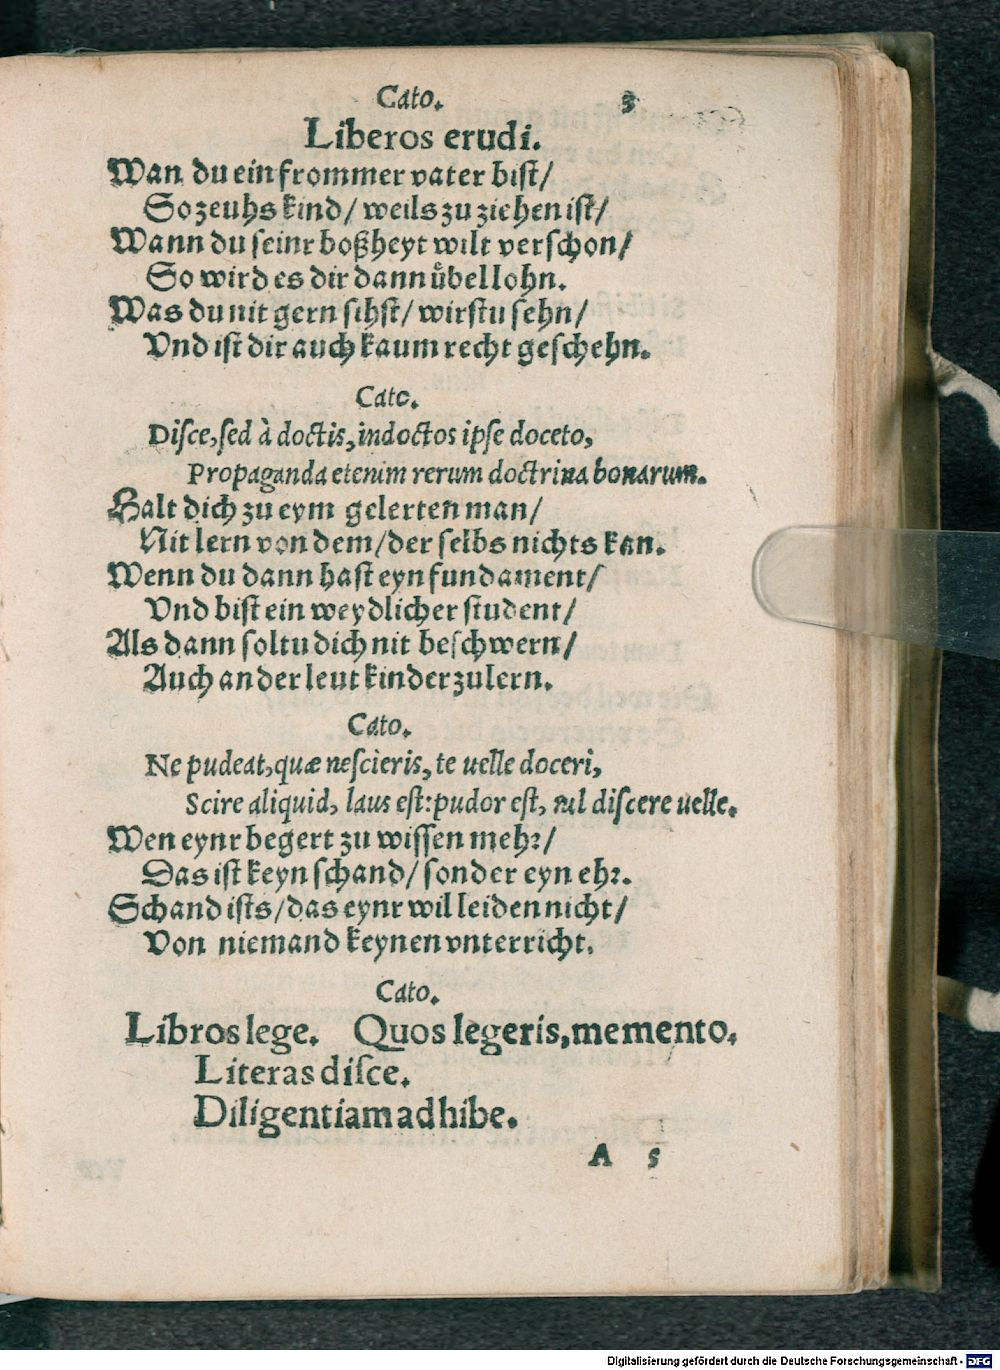 Cato. 3
Liberos erudi.
Wan du ein frommer vater bist/
So zeuhs kind/ weils zu ziehen ist/
Wann du seinr boßheyt wilt verschon/
So wird es dir dann uͤbel lohn.
Was du nit gern sihst/ wirstu sehn/
Vnd ist dir auch kaum recht geschehn.
Cato.
Disce, sed à doctis, indoctos ipse doceto,
Propaganda etenim rerum doctrina bonarum.
Halt dich zu eym gelerten man/
Nit lern von dem/ der selbs nichts kan.
Wenn du dann hast eyn fundament/
Vnd bist ein weydlicher student/
Als dann soltu dich nit beschwern/
Auch ander leut kinder zu lern.
Cato.
Ne pudeat, quæ nescieris, te uelle doceri,
Scire aliquid, laus est: pudor est, nil discere uelle.
Wen eynr begert zu wissen mehr/
Das ist keyn schand/ sonder eyn ehr.
Schand ists/ das eynr wil leiden nicht/
Von niemand keynen vnterricht.
Cato.
Libros lege. Quos legeris, memento.
Literas disce.
Diligentiam adhibe.
A 5
Digitalisierung gefördert durch die Deutsche Forschungsgemeinschaft - DFG